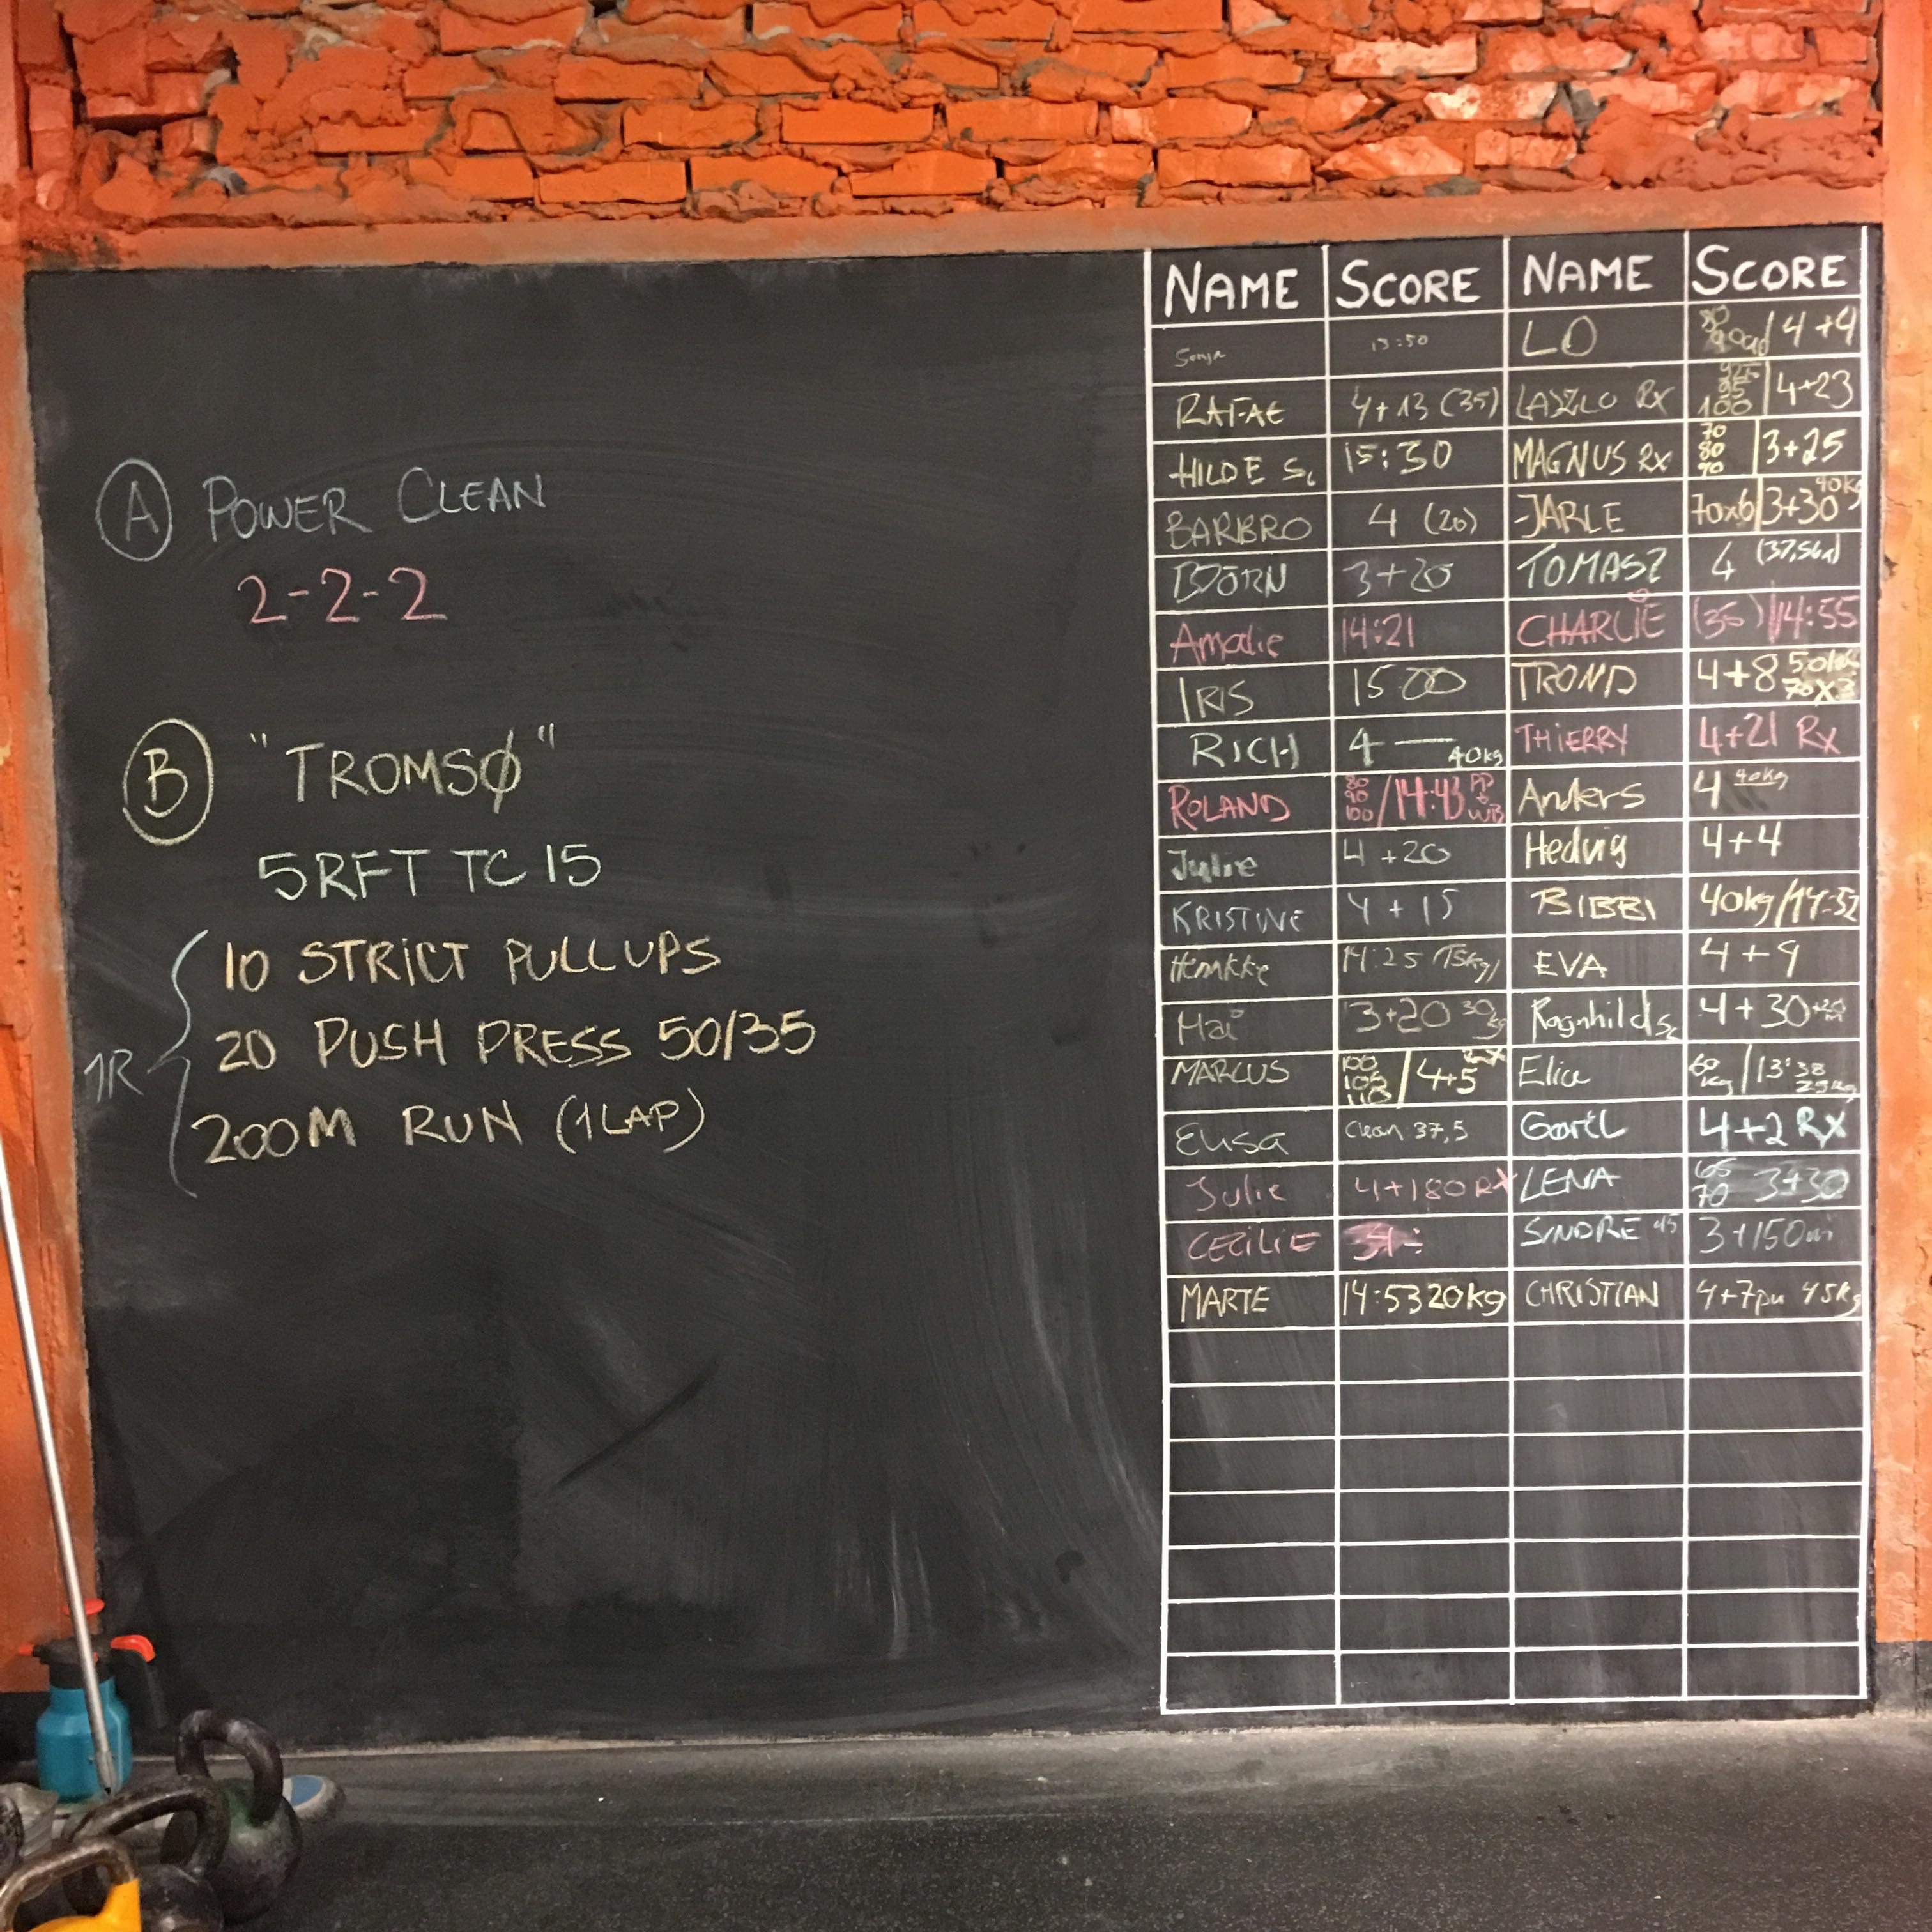 NAME SCORE NAME SCORE
A POWER CLEAN
2-2-2
B "TROMSØ"
5RFT TC 15
1R
10 STRICT PULLUPS
20 PUSH PRESS 50/35
200M RUN (1LAP)
Sonja 13:50 LO 4+4
RAFAE 4+13 (35) LASZLO Rx 95 100 4+23
HILDE Sc 15:30 MAGNUS Rx 70 80 90 3+25
BARBRO 4 (20) JARLE 70x6 3+30 40kg
BJÖRN 3+20 TOMASZ 4
Amalie 14:21 CHARLIE (35) 14:55
IRIS 15 00 TROND 4+8 70x3
RICH 4 — 40kg THIERRY 4+21 Rx
ROLAND 80 90 100 / 14:43 PP + WB Anders 4 40kg
Julie 4+20 Hedvig 4+4
KRISTINE 4+15 BIBBI 40kg/14:52
14:25 15kg EVA 4+9
Mai 3+20 30kg Ragnhild Sc 4+30
MARCUS 100 105 110 / 4+5 60 kg / 13:38 25kg
Elisa Clean: 37,5 4+2 Rx
Julie 4+180 Rx LENA 65 70 3+30
CECILIE SINDRE 45 3+150m
MARTE 14:53 20kg CHRISTIAN 4+7pu 45kg